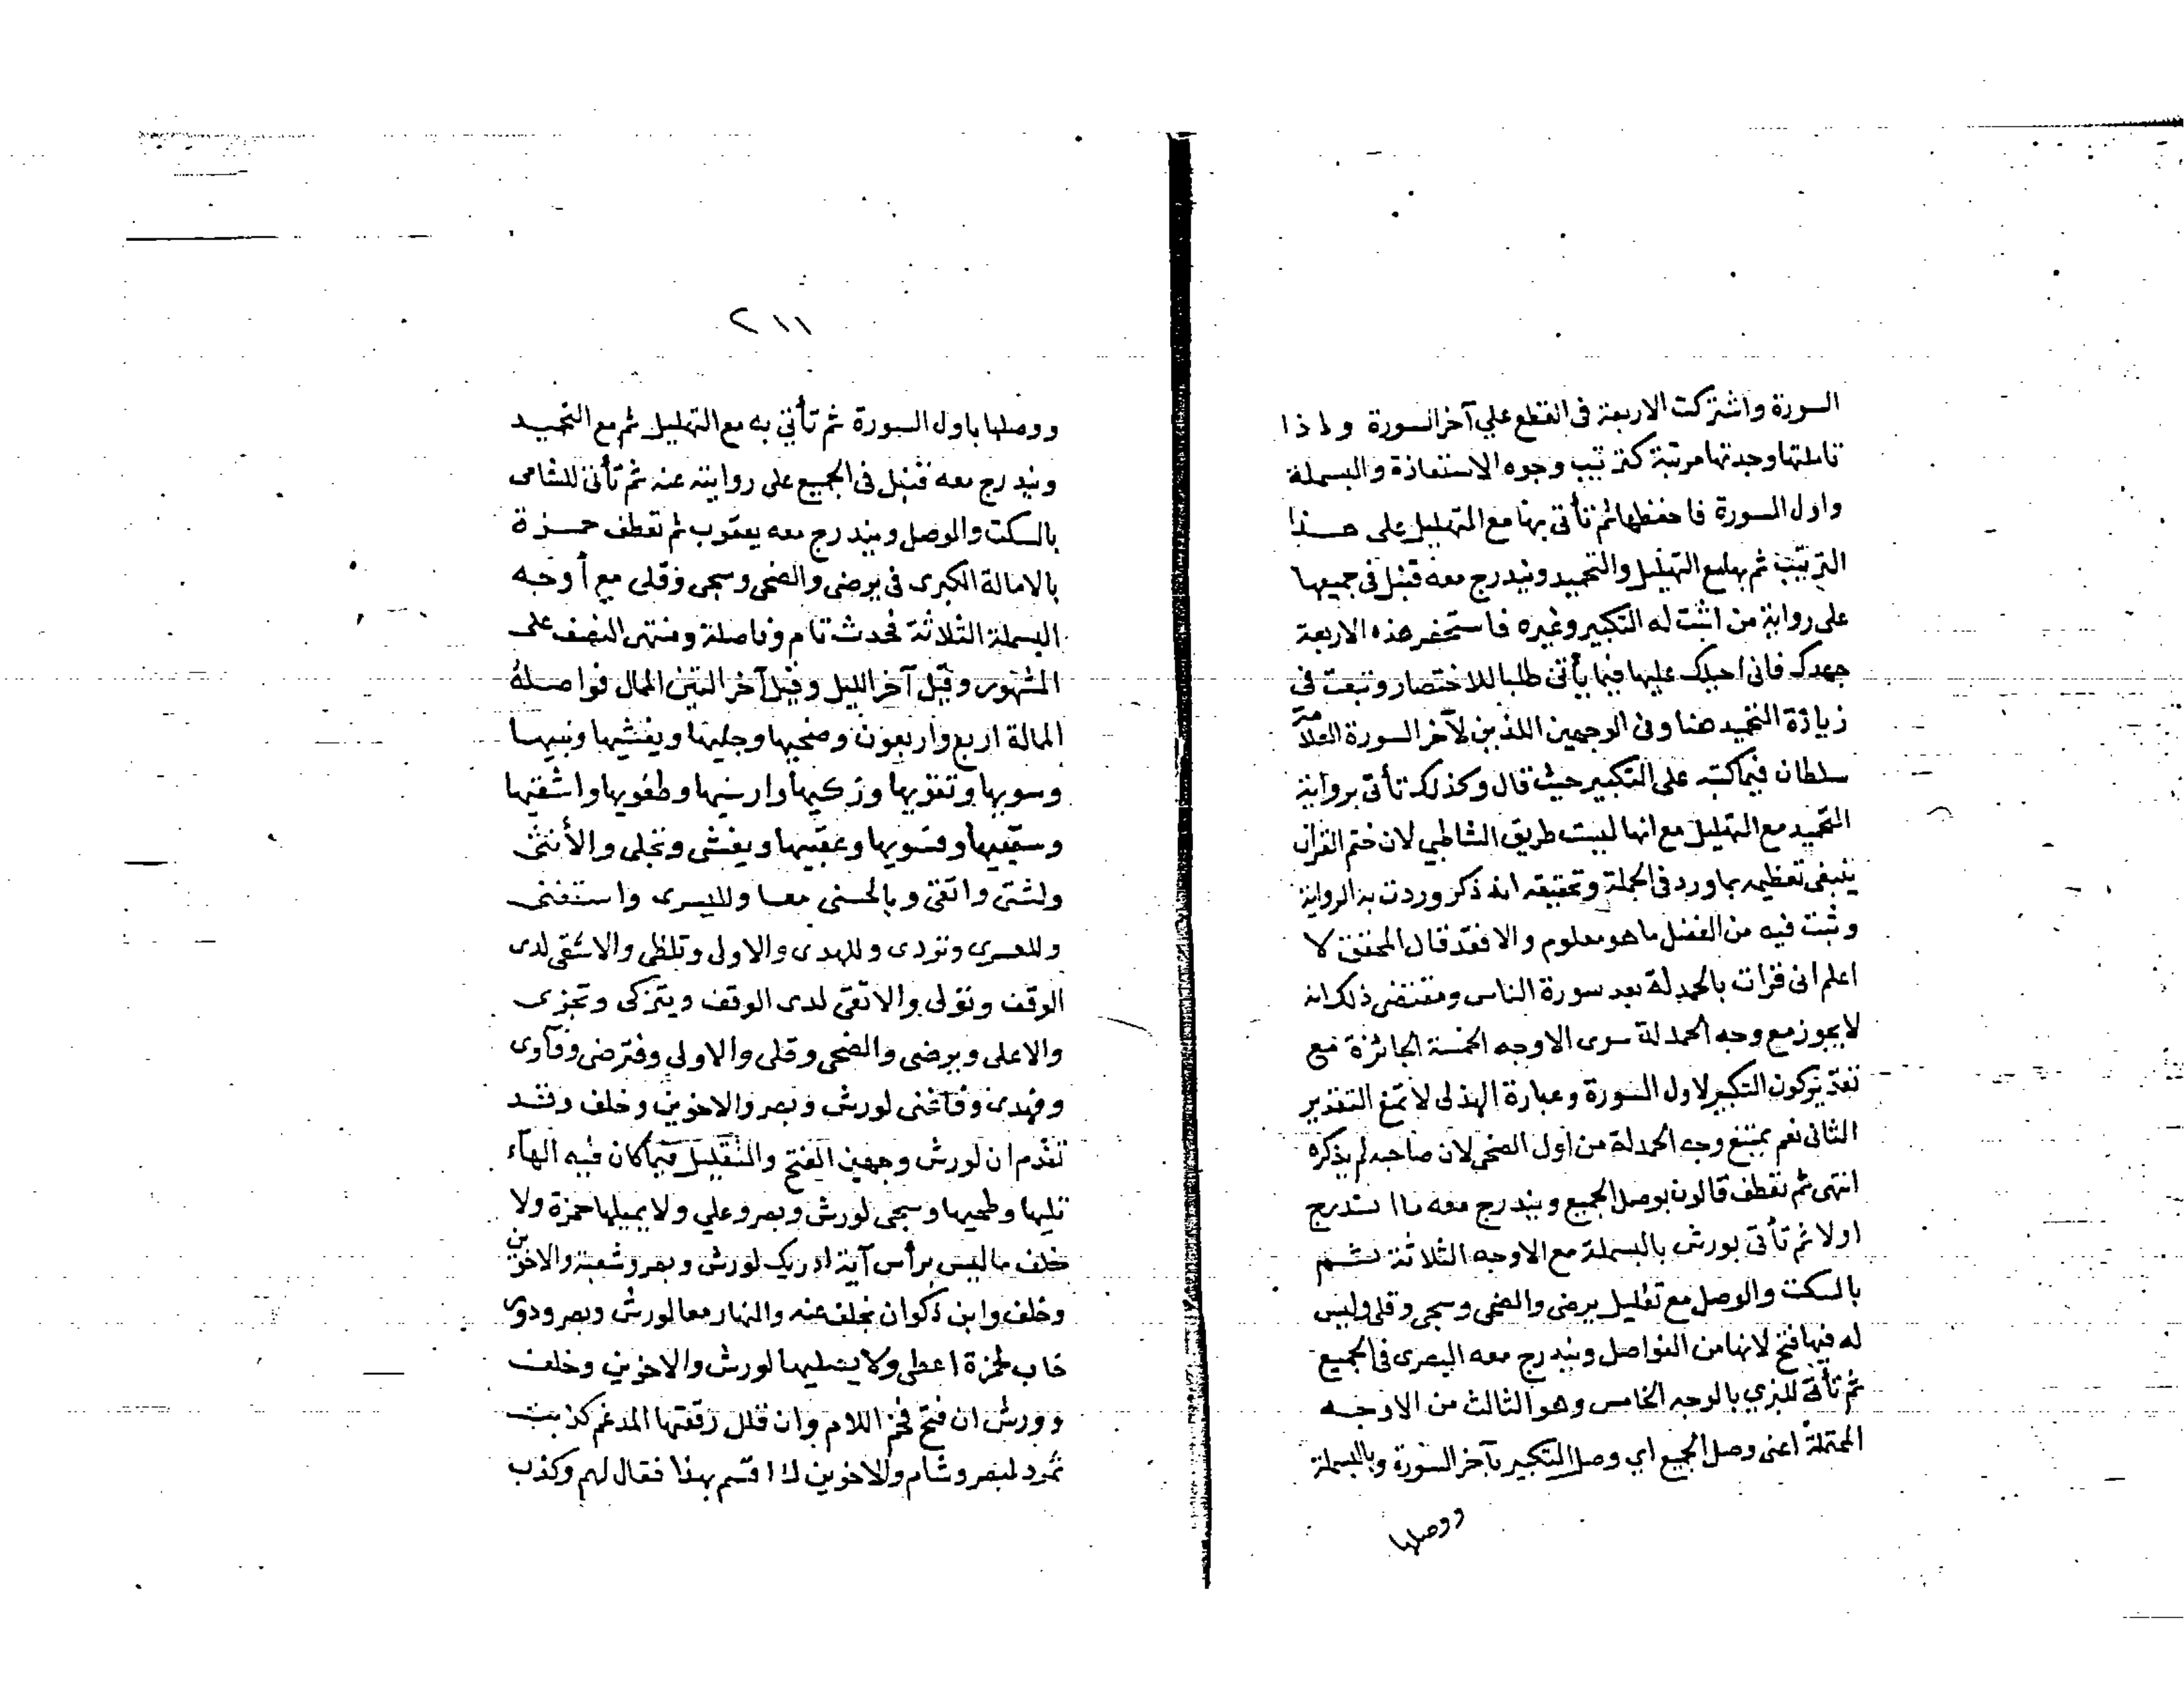 السورة واشتركت الاربعة فى القطع علي آخر السورة ولذا
تاملتها وجدتها مرتبة كترتيب وجوه الاستعاذة والبسملة
واول السورة فاحفظها ثم تأتى بها مع التهليل على هذا
الترتيب ثم بها مع التهليل والتحميد ويندرج معه قنبل فى جميعها
على رواية من اثبت له التكبير وغيره فاستحضر هذه الاربعة
جهدك فانى احيلك عليها فيما يأتى طلبا للاختصار وتبعت فى
زيادة التحميد هنا وفى الوجهين اللذين لآخر السورة العلامة
سلطان فيما كتبه على التكبير حيث قال وكذلك تأتى برواية
التحميد مع التهليل مع انها ليست طريق الشاطبي لان ختم القرآن
ينبغى تعظيمه بما ورد فى الجملة وتحقيقه انه ذكر وردت به الرواية
وثبت فيه من الفضل ما هو معلوم والا فقد قال المحقق لا
اعلم انى قرات بالحمدلة بعد سورة الناس ومقتضى ذلك انه
لا يجوز مع وجه الحمدلة سوى الاوجه الخمسة الجائزة مع
تقدير كون التكبير لاول السورة وعبارة الهذلى لا تمنع التقدير
الثانى نعم يمتنع وجه الحمدلة من اول الضحى لان صاحبه لم يذكره
انتهى ثم تعطف قالون بوصل الجميع ويندرج معه ما اندرج
اولا ثم تأتى بورش بالبسملة مع الاوجه الثلاثة ثم
بالسكت والوصل مع تقليل يرضى والضحى وسجى وقلى وليس
له فيها فتح لانها من الفواصل ويندرج معه البصرى فى الجميع
ثم تأتى للبزي بالوجه الخامس وهو الثالث من الاوجه
المحتملة اعنى وصل الجميع اي وصل التكبير بآخر السورة وبالبسملة
ووصلها
٢١١
ووصلها باول السورة ثم تأتي به مع التهليل ثم مع التحميد
ويندرج معه قنبل فى الجميع على روايته عنه ثم تأتى للشامى
بالسكت والوصل ويندرج معه يعقوب ثم تعطف حمزة
بالامالة الكبرى فى يرضى والضحى وسجى وقلى مع أوجه
البسملة الثلاثة فحدث تام وفاصلة ومنتهى النصف على
المشهور وقيل آخر الليل وقيل آخر التين الممال فواصله
الممالة اربع واربعون وضحيها وجليها ويغشيها وبنيها
وسويها وتقويها وزكيها ودسيها وطغويها واشقيها
وسقيها وفسويها وعقبيها ويغشى وتجلى والأنثى
ولشتى واتقى وبالحسنى معا ولليسرى واستغنى
وللعسرى وتردى وللهدى والاولى وتلظى والاشقى لدى
الوقف وتولى والاتقى لدى الوقف ويتزكى وتجزى
والاعلى ويرضى والضحى وقلى والاولى وفترضى وفآوى
وفهدى وفاغنى لورش وبصر والاخوين وخلف وقد
تقدم ان لورش وجهين الفتح والتقليل فيما كان فيه الهآء
تليها وطحيها وسجى لورش وبصر وعلي ولا يميلها حمزة ولا
خلف ما ليس برأس آية ادريك لورش وبصر وشعبة والاخوين
وخلف وابن ذكوان بخلف عنه والنهار معا لورش وبصر ودورى
خاب لحمزة اعطى ولا يصليها لورش والاخوين وخلف
وورش ان فتح فخم اللام وان قلل رققتها المدغم كذبت
ثمود لبصر وشام والاخوين لا اقسم بهذا فقال لهم وكذب